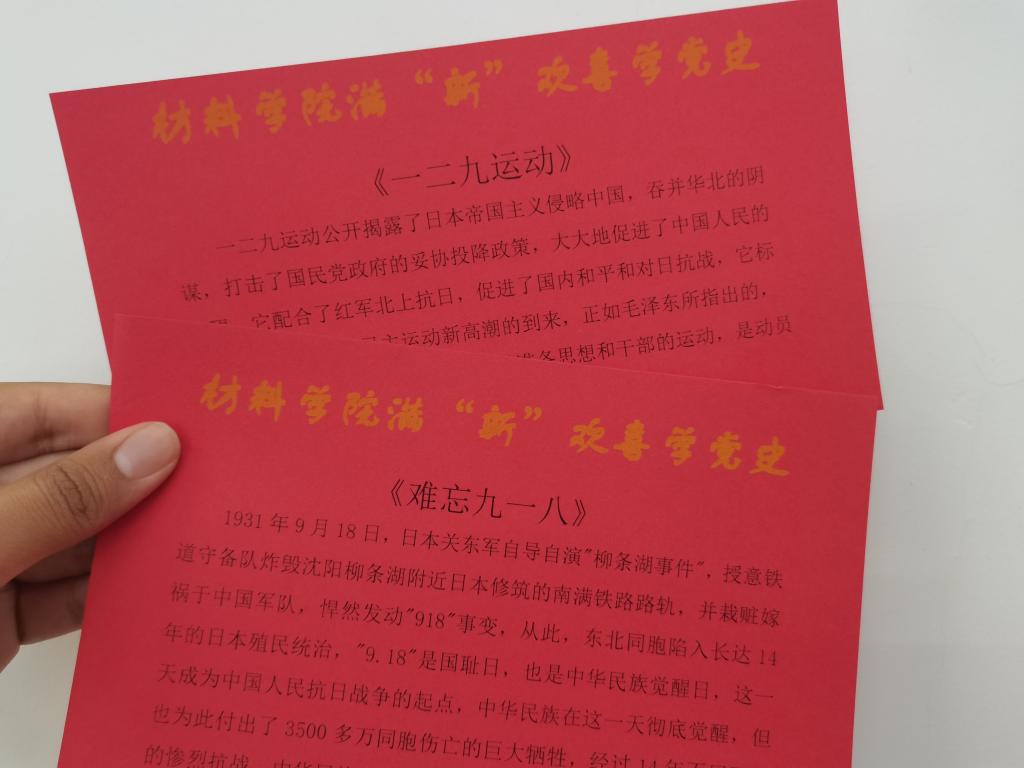 材料学院满“新”欢喜学党史
《一二九运动》
一二九运动公开揭露了日本帝国主义侵略中国，吞并华北的阴
谋，打击了国民党政府的妥协投降政策，大大地促进了中国人民的
它配合了红军北上抗日，促进了国内和平和对日抗战，它标
主运动新高潮的到来，正如毛泽东所指出的，
准备思想和干部的运动，是动员
材料学院满“新”欢喜学党史
《难忘九一八》
1931 年 9 月 18 日，日本关东军自导自演"柳条湖事件"，授意铁
道守备队炸毁沈阳柳条湖附近日本修筑的南满铁路路轨，并栽赃嫁
祸于中国军队，悍然发动"918"事变，从此，东北同胞陷入长达 14
年的日本殖民统治，"9.18"是国耻日，也是中华民族觉醒日，这一
天成为中国人民抗日战争的起点，中华民族在这一天彻底觉醒，但
也为此付出了 3500 多万同胞伤亡的巨大牺牲，经过 14 年不
的惨烈抗战，中华